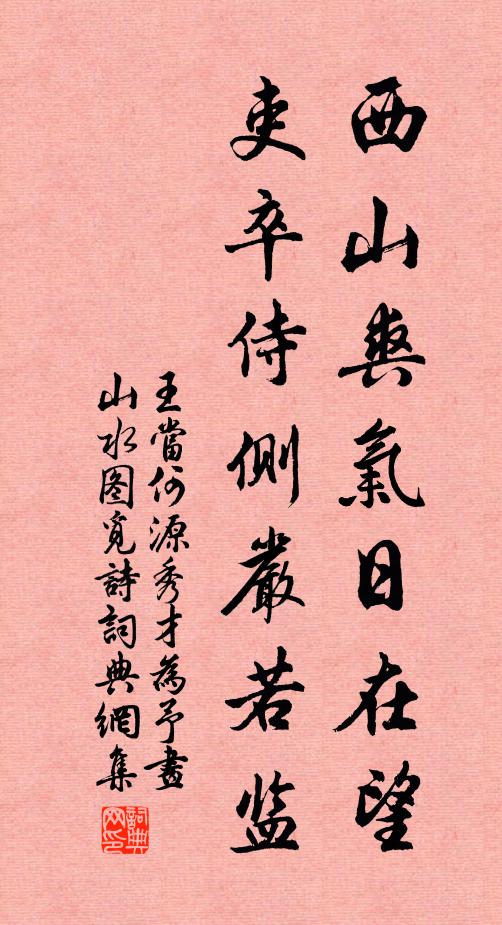 西山爽氣日在望
吏卒侍側嚴若监
王當何源秀才為予畫
山水图覓詩詞典網集
詞典
网印